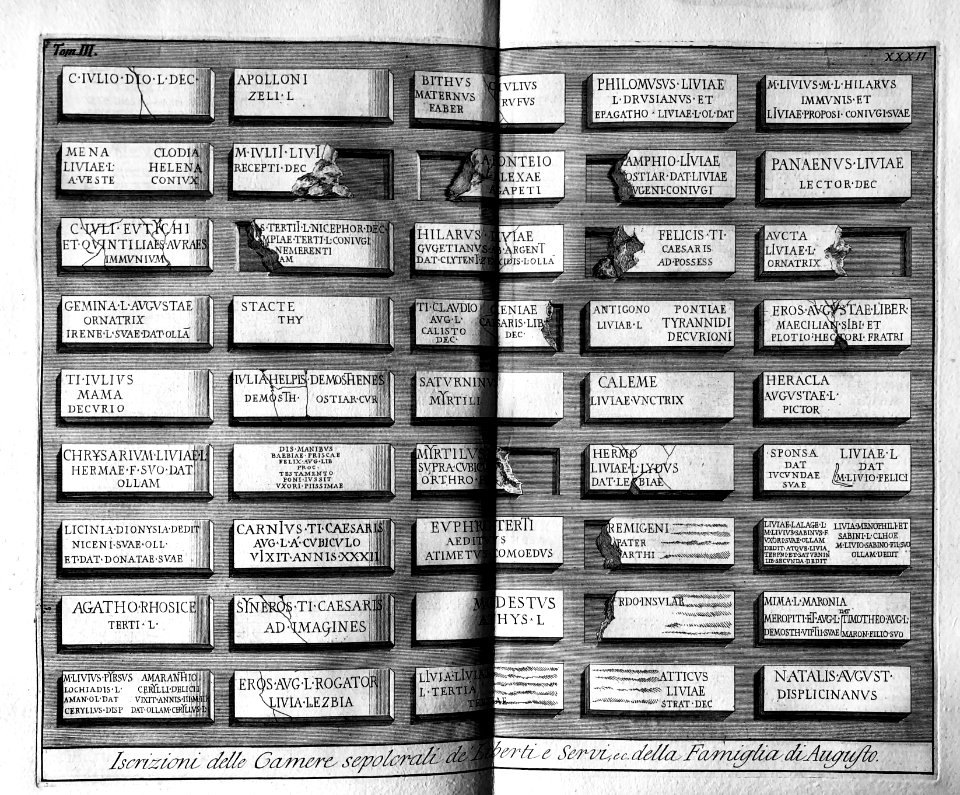 Tom. III.
XXXII
C·IVLIO·DIO·L·DEC·
APOLLONI
ZELI·L
BITHVS
MATERNVS
FABER
IVLIVS
RVFVS
PHILOMVSVS·LIVIAE
L·DRVSIANVS·ET
EPAGATHO·LIVIAE·L·OL·DAT
M·LIVIVS·M·L·HILARVS
IMMVNIS·ET
LIVIAE·PROPOSI·CONIVGI·SVAE
MENA
LIVIAE·L
A·VESTE
CLODIA
HELENA
CONIVX
M·IVLII·LIVI
RECEPTI·DEC
MONTEIO
ALEXAE
AGAPETI
AMPHIO·LIVIAE
OSTIAR·DAT·LIVIAE
VGENI·CONIVGI
PANAENVS·LIVIAE
LECTOR·DEC
C·IVLI·EVTICHI
ET·QVINTILIAES·AVRAES
IMMVNIVM
S·TERTII·L·NICEPHOR·DEC·
MPIAE·TERTI·L·CONIVGI
NEMERENTI
AM
HILARVS·LIVIAE
GVGETIANVS·A·ARGENT
DAT·CLYTENI OLLA
FELICIS·TI·
CAESARIS
AD·POSSESS
AVCTA
LIVIAE·L·
ORNATRIX
GEMINA·L·AVGVSTAE
ORNATRIX
IRENE·L·SVAE·DAT·OLLA
STACTE
THY
TI·CLAVDIO
AVG·L·
CALISTO
DEC·
CAESARIS·LIB
DEC·
ANTIGONO
LIVIAE·L
PONTIAE
TYRANNIDI
DECVRIONI
EROS·AVGVSTAE·LIBER·
MAECILIAN·SIBI·ET
PLOTIO·HECTORI·FRATRI
TI·IVLIVS
MAMA
DECVRIO
IVLIA·HELPIS·DEMOSTHENES
DEMOSTH· OSTIAR·CVR
SATVRNINV
MYRTILI
CALEME
LIVIAE·VNCTRIX
HERACLA
AVGVSTAE·L·
PICTOR
CHRYSARIVM·LIVIAE·L
HERMAE·F·SVO·DAT
OLLAM
DIS·MANIBVS
BAEBIAE·PRISCAE
FELIX·AVG·LIB
PROC·
TESTAMENTO
PONI·IVSSIT
VXORI·PIISSIMAE
MIRTILVS
SVPRA·CVBICV
ORTHRO·
HERMO
LIVIAE·L·LYDVS
DAT·LEZBIAE
SPONSA
DAT
IVCVNDAE
SVAE
LIVIAE·L
DAT
M·LIVIO·FELICI
LICINIA·DIONYSIA·DEDIT
NICENI·SVAE·OLL·
ET·DAT·DONATAE·SVAE
CARNIVS·TI·CAESARIS
AVG·L·A·CVBICVLO
VIXIT·ANNIS·XXXII
EVPHR TERTI
AEDITVVS
ATIMETVS COMOEDVS
REMIGENI
PATER
PARTHI
LIVIAE·LALAGE·L·
M·LIVIVS·SABINVS·F·
VXORI·SVAE·OLLAM
DEDIT·ATQVE·LIVIA
TERPNI·ET·SATVRNIN
LIB·SECVNDA·DEDIT
LIVIA·MENOPHILI·ET
SABINI·L·CLHOE
M·LIVIO·SABINO·FIL·SVO
OLLAM·DEDIT
AGATHO·RHOSICE
TERTI·L·
SINEROS·TI·CAESARIS
AD·IMAGINES
MODESTVS
PHYS·L
RDO·INSVLAR
MIMA·L·MARONIA
MEROPI·TI·ET·AVG·L·
DEMOSTH·VTTI·SVAE
DAT
TIMOTHEO·AVG·L·
MARON·FILIO·SVO
M·LIVIVS·PIRSVS
LOCHIADIS·L·
AMAN·OL·DAT
CERYLLVS·DISP
AMARANTHIO
CERILLI·DELICII
VIXIT·ANNIS·III·
DAT·OLLAM·CERYLLVS·D
EROS·AVG·L·ROGATOR
LIVIA·LEZBIA
LIVIA·LIVIA
L·TERTIA
ATTICVS
LIVIAE
STRAT·DEC
NATALIS·AVGVST·
DISPLICINANVS
Iscrizioni delle Camere sepolcrali de' Liberti e Servi, ec. della Famiglia di Augusto.